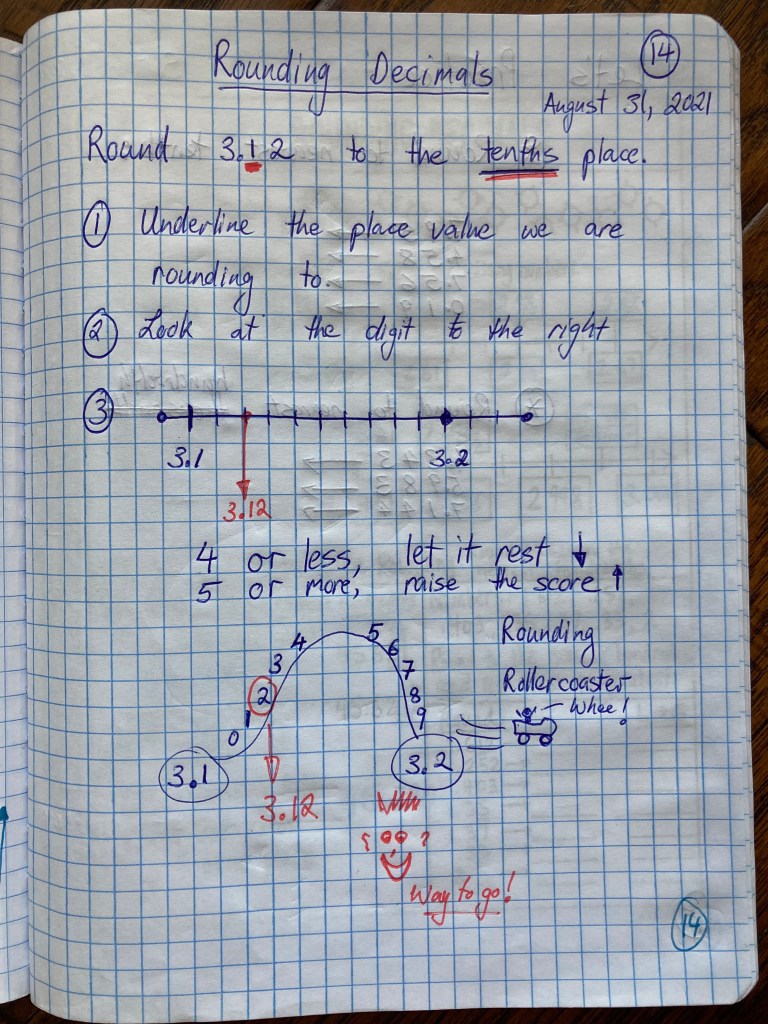 Rounding Decimals
14
August 31, 2021
Round 3.12 to the tenths place.
1 Underline the place value we are
rounding to.
2 Look at the digit to the right
3
3.1 3.2
3.12
4 or less, let it rest ↓
5 or more, raise the score ↑
Rounding
Rollercoaster
Whee!
0 1 2 3 4 5 6 7 8 9
3.1 3.2
3.12
Way to go!
14